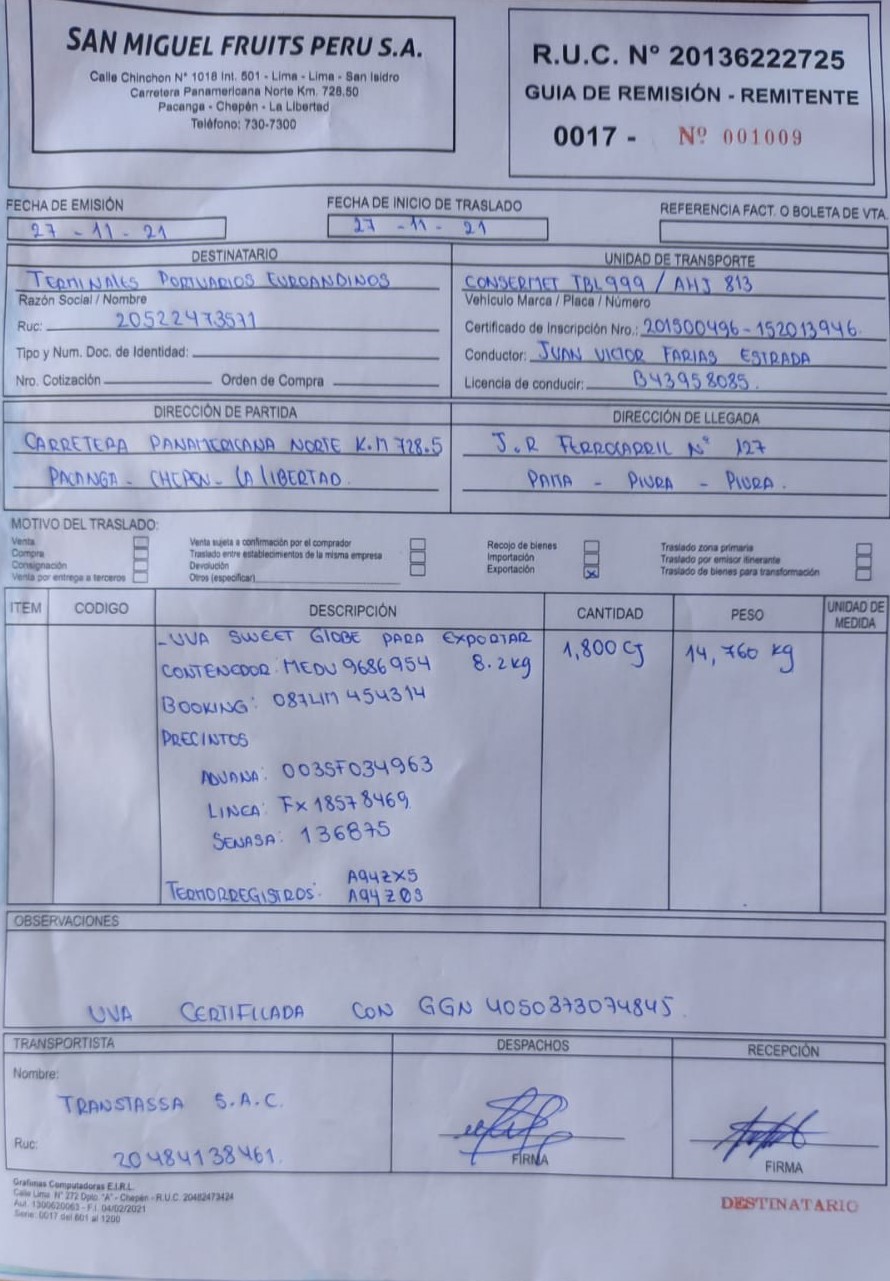 SAN MIGUEL FRUITS PERU S.A.
Calle Chinchon N° 1018 Int. 501 - Lima - Lima - San Isidro
Carretera Panamericana Norte Km. 728.50
Pacanga - Chepén - La Libertad
Teléfono: 730-7300
R.U.C. N° 20136222725
GUIA DE REMISIÓN - REMITENTE
0017 - Nº 001009
FECHA DE EMISIÓN
27 - 11 - 21
FECHA DE INICIO DE TRASLADO
27 - 11 - 21
REFERENCIA FACT. O BOLETA DE VTA.
DESTINATARIO
TERMINALES PORTUARIOS EUROANDINOS
Razón Social / Nombre
Ruc: 20522473571
Tipo y Num. Doc. de Identidad:
Nro. Cotización Orden de Compra
UNIDAD DE TRANSPORTE
CONSERMET TBL999 / AHJ 813
Vehículo Marca / Placa / Número
Certificado de Inscripción Nro.: 201500496-152013946.
Conductor: JUAN VICTOR FARIAS ESTRADA
Licencia de conducir: B43958085.
DIRECCIÓN DE PARTIDA
CARRETERA PANAMERICANA NORTE K.M 728.5
PACANGA - CHEPEN - LA LIBERTAD.
DIRECCIÓN DE LLEGADA
J.R FERROCARRIL N° 127
PAITA - PIURA - PIURA.
MOTIVO DEL TRASLADO:
Venta
Compra
Consignación
Venta por entrega a terceros
Venta sujeta a confirmación por el comprador
Traslado entre establecimientos de la misma empresa
Devolución
Otros (especificar)
Recojo de bienes
Importación
Exportación X
Traslado zona primaria
Traslado por emisor itinerante
Traslado de bienes para transformación
ITEM CODIGO DESCRIPCIÓN CANTIDAD PESO UNIDAD DE MEDIDA
- UVA SWEET GLOBE PARA EXPORTAR 1,800 CJ 14,760 kg
CONTENEDOR: MEDU 9686954 8.2 kg
BOOKING: 087LIM 454314
PRECINTOS
ADUANA: 003SF034963
LINEA: Fx 18578469
SENASA: 136875
TERMORREGISTROS: A94ZX5
A94Z0S
OBSERVACIONES
UVA CERTIFICADA CON GGN 4050373074845.
TRANSPORTISTA
Nombre:
TRANSTASSA S.A.C.
Ruc:
20484138461.
DESPACHOS
FIRMA
RECEPCIÓN
FIRMA
Grafimas Computadoras E.I.R.L.
Calle Lima N° 272 Dpto. "A" - Chepén - R.U.C. 20482473424
Aut. 1300620063 - F.I. 04/02/2021
Serie: 0017 del 601 al 1200
DESTINATARIO